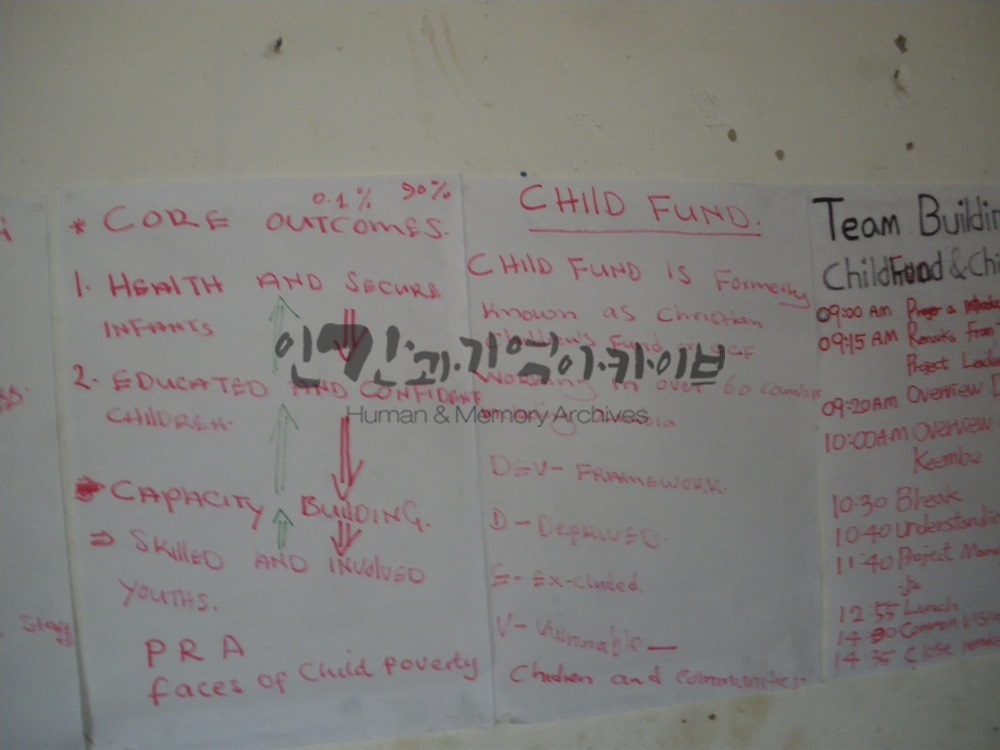 0.1% 90%
* CORE OUTCOMES.
1. HEALTH AND SECURE
INFANTS
2. EDUCATED AND CONFIDENT
CHILDREN.
CAPACITY BUILDING.
⇒ SKILLED AND INVOLVED
YOUTHS.
PRA
faces of Child poverty
CHILD FUND.
CHILD FUND is Formerly
Known as Christian
Fund
Working in over 60
DEV- FRAMEWORK.
D- DEPRIVED.
E- Excluded.
V- Vulnerable
Children and Communities.
Team Buildin
ChildFund & Chi
09:00 AM Prayer
09:15 AM Remarks From
Project Leade
09:20AM Overview
10:00AM Overview
Keembe
10:30 Break
10:40 Understandin
11:40 Project Mana
12:55 Lunch
Common
14:35 Close
인간과기억아카이브
Human & Memory Archives